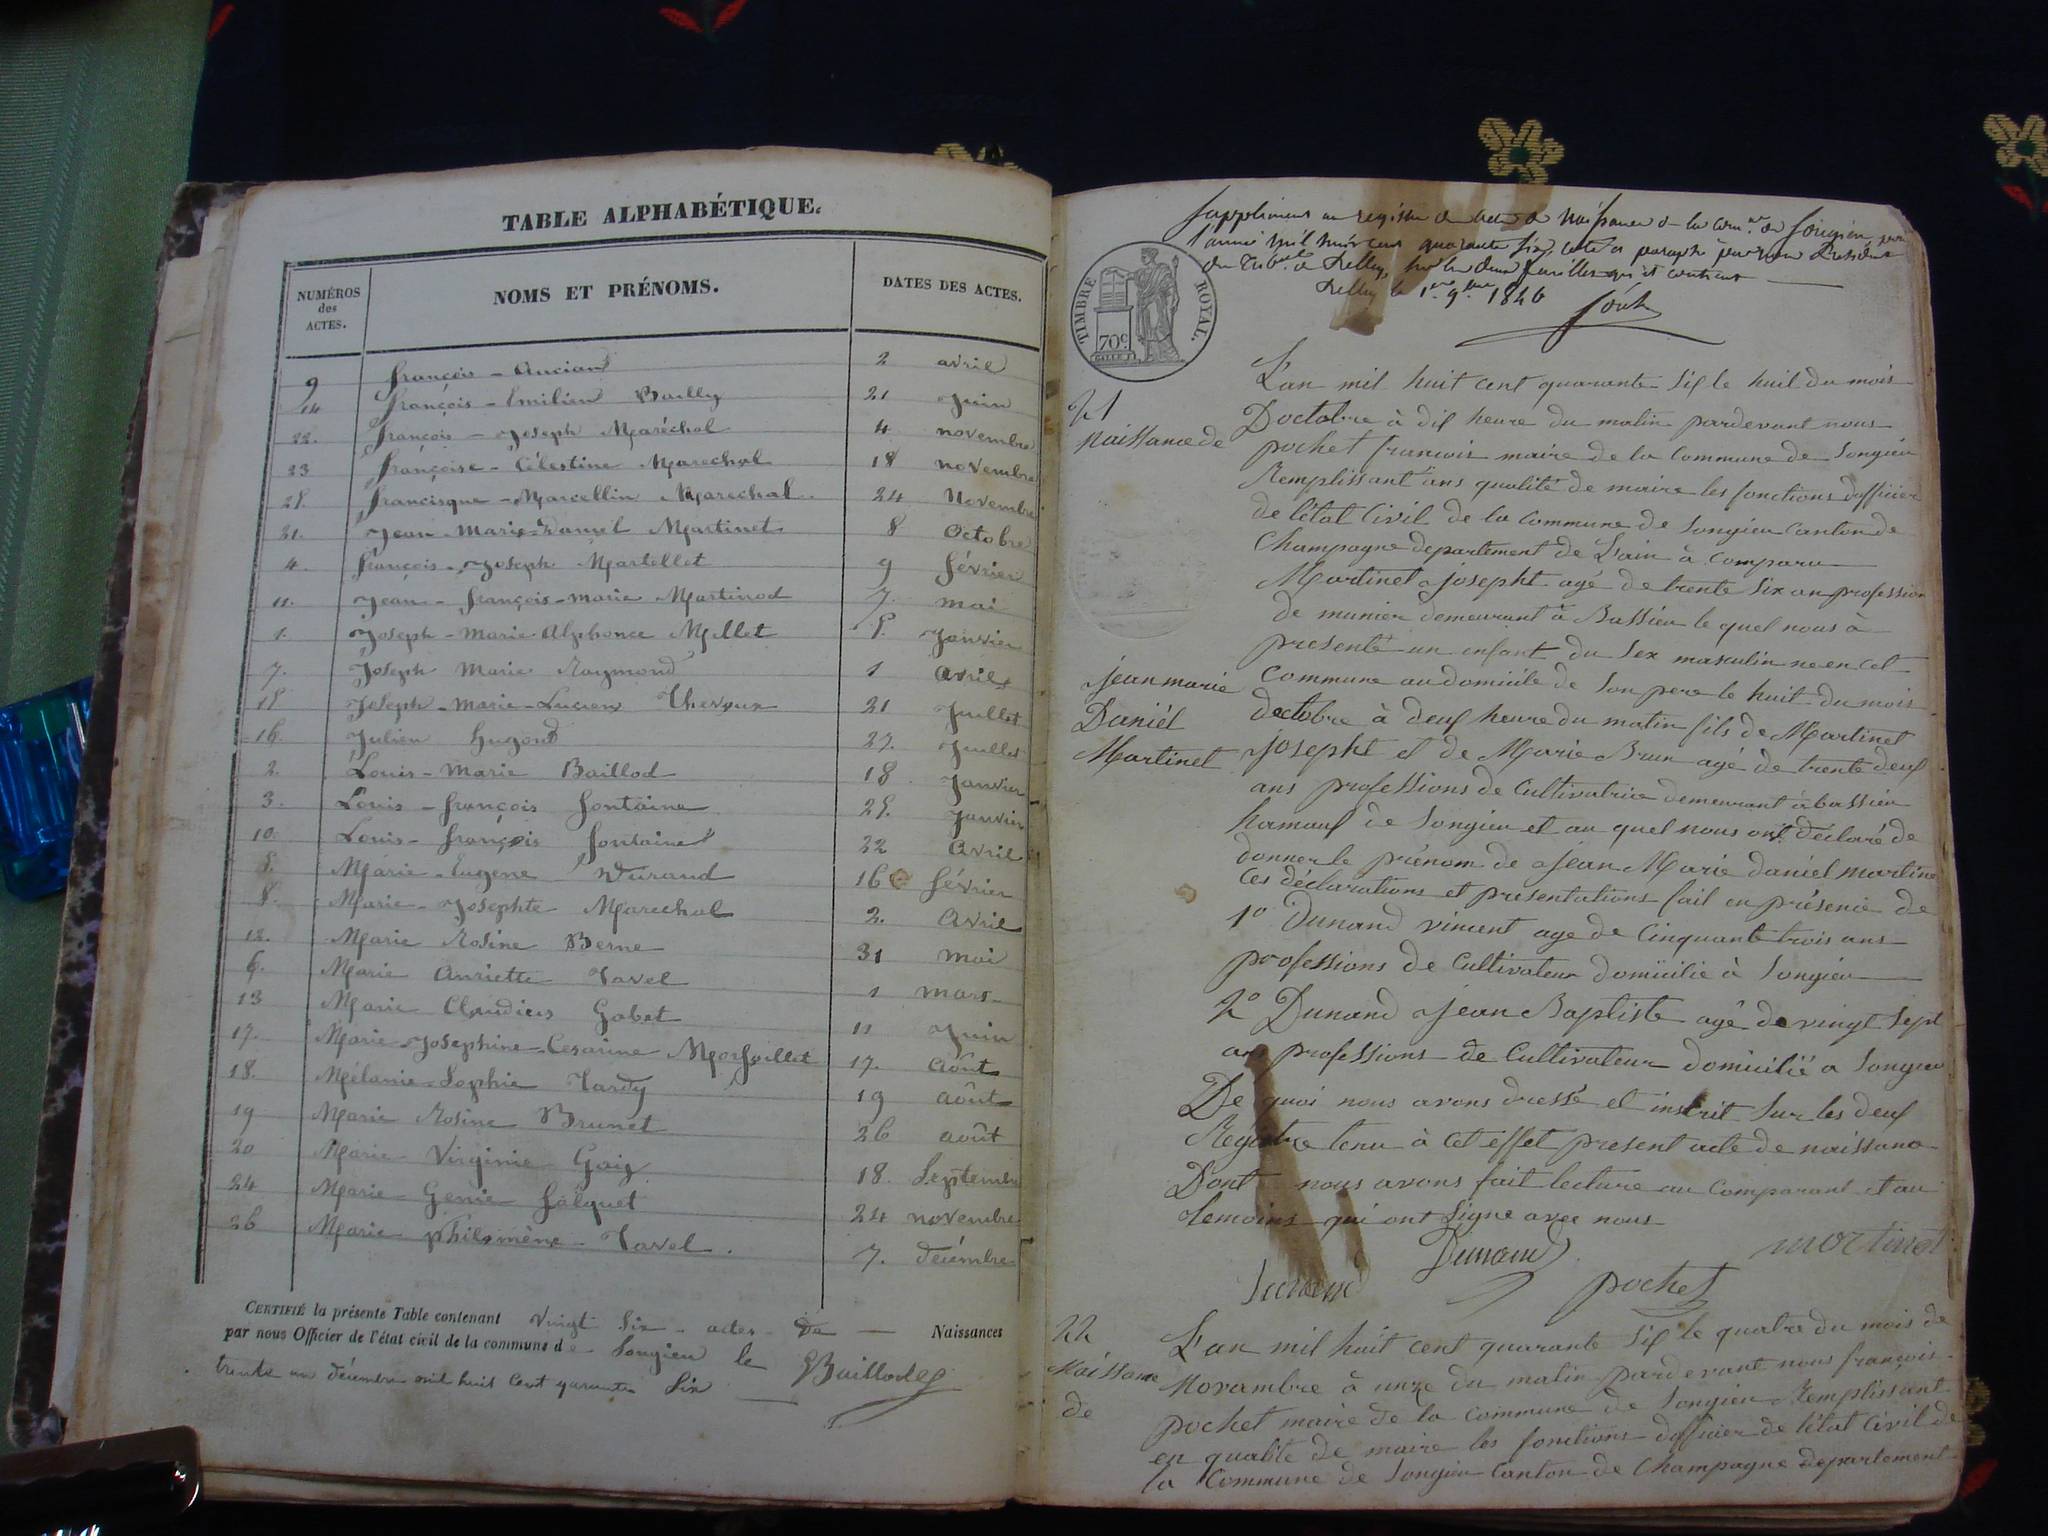 TABLE ALPHABÉTIQUE.
NUMÉROS des ACTES.
NOMS ET PRÉNOMS.
DATES DES ACTES.
9 françois - Ancian 2 avril
14 françois - Emilien Bailly 21 Juin
22. françois - Joseph Maréchal 4 novembre
23 françoise - Célestine Marechal 18 novembre
25. francisque - Marcellin Marechal 24 Novembre
21. Jean-Marie-Daniel Martinet 8 Octobre
4. françois - Joseph Martellet 9 février
11. Jean - françois - marie Martinod 7. mai
1. Joseph - Marie Alphonce Millet 5. Janvier
7. Joseph Marie Raymond 1 avril
15 Joseph - Marie - Lucien 21 Juillet
16. Julien Hugond 27. Juillet
2. Louis - Marie Baillod 18 Janvier
3. Louis - françois fontaine 25. Janvier
10. Louis - françois fontaine 22 Avril
5. Marie - Eugene Durand 16 février
8. Marie - Josephte Marechal 2. Avril
12. Marie Rosine Berne 31 Mai
6. Marie Anriette Tavel 1 mars
13 Marie Claudius Gobet 11 Juin
17. Marie Josephine Cesarine 17. Août
18. Mélanie - Sophie Tardy 19 août
19 Marie Rosine Brunet 26 août
20 Marie Virginie 18. Septembre
24 Marie Genie falquet 24 novembre
26 Marie philomène - Tavel. 7. décembre
CERTIFIÉ la présente Table contenant vingt six actes de Naissances
par nous Officier de l'état civil de la commune de Songieu le
trente un décembre mil huit cent quarante six
Suppliment au registre des actes de Naissance de la comne de Songieu pour
l'année mil huit cent quarante six, coté et paraphé par nous Président
du Tribal de Belley, sur les deux feuilles qu'il contient
Belley le 1er 9bre 1846
TIMBRE ROYAL.
70c.
21
naissance de
jean marie
Daniél
Martinet
L'an mil huit cent quarante six le huit du mois
D'octobre à dix heure du matin pardevant nous
pochet francois maire de la Commune de Songieu
Remplissant ans qualité de maire les fonctions d'officier
de l'état Civil de la commune de Songieu Canton de
Champagne departement de L'ain à comparu
Martinet josepht agé de trente six an profession
de munier demeurant à Bassieu le quel nous à
presenté un enfant du sex masculin ne en cet
Commune au domicile de son pere le huit du mois
doctobre à deux heure du matin fils de Martinet
josepht et de Marie Brun agé de trente deux
ans professions de Cultivatrice demeurant à bassieu
hamaux de Songieu et au quel nous ont déclaré de
donner le prénom de jean Marie daniél martine
Ces déclarations et presentations fait en présence de
1o Dunand vincent age de Cinquante trois ans
professions de Cultivateur domicilie à Songieu
2o Dunand jean Baptiste agé de vingt sept
ans professions de Cultivateur domicilié a Songieu
De quoi nous avons dressé et inscrit sur les deux
Registre tenu à cet effet present acte de naissance
Dont nous avons fait lecture au Comparant et au
temoins qui ont signe avec nous
Dunand martinet
Dunand pochet
22
Naissance
de
L'an mil huit cent quarante six le quatre du mois de
Novambre à unze du matin pardevant nous françois
pochet maire de la commune de Songieu Remplissant
en qualité de maire les fonctions d'officier de l'état Civil de
la Commune de Songieu Canton de Champagne departement